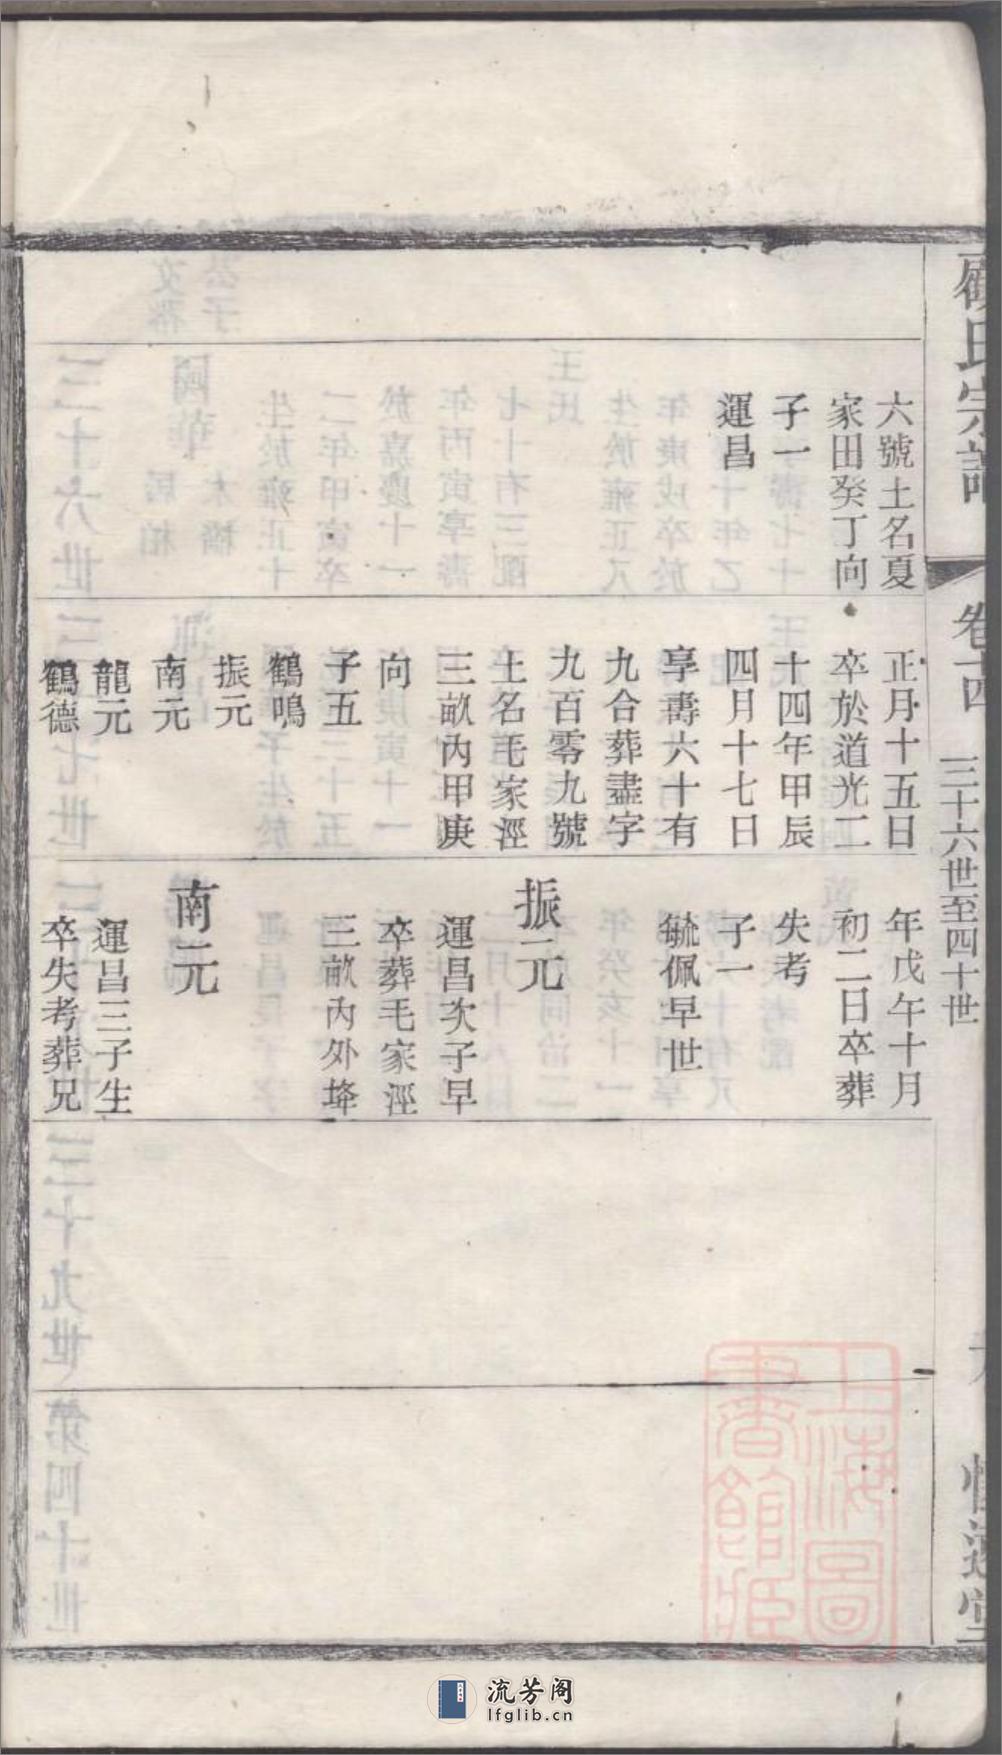 顧氏宗譜
卷十四
三十六世至四十世
六號土名夏
家田癸丁向
子一
運昌
正月十五日
卒於道光二
十四年甲辰
四月十七日
享壽六十有
九合葬盡字
九百零九號
土名毛家涇
三畝內甲庚
向
子五
鶴鳴
振元
南元
龍元
鶴德
年戊午十月
初二日卒葬
失考
子一
毓佩早世
振元
運昌次子早
卒葬毛家涇
三畝內外埄
南元
運昌三子生
卒失考葬兄
上海圖
書館藏
流芳阁
lfglib.cn